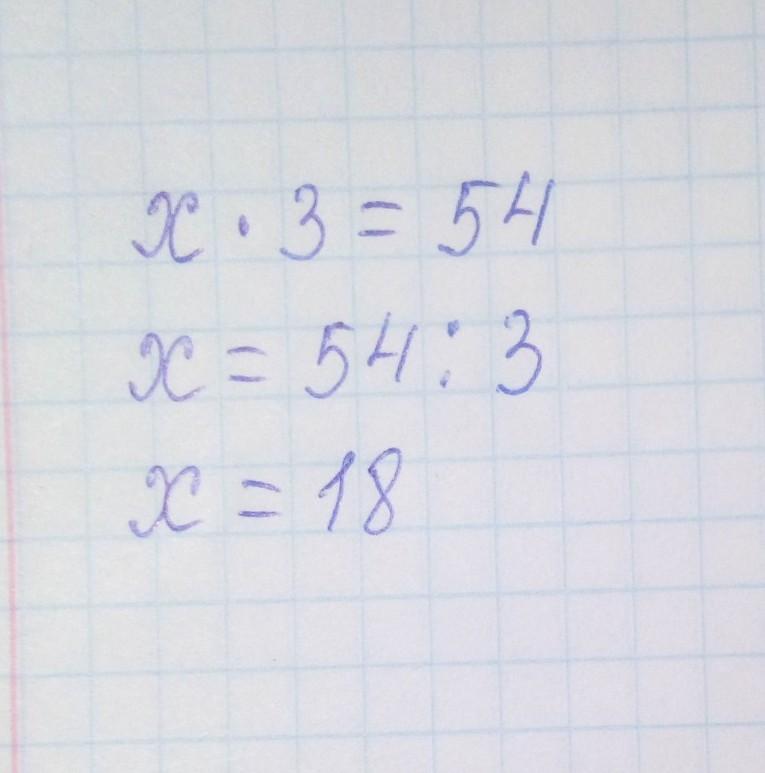 x · 3 = 54
x = 54 : 3
x = 18